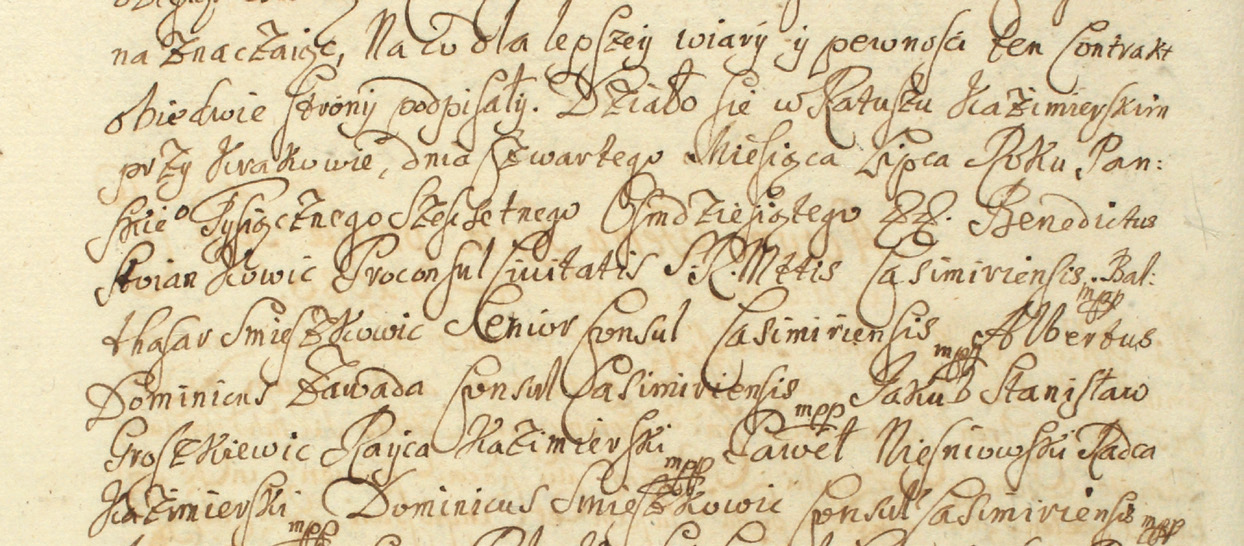 naznaczaiąc, Na co dla lepszey wiary y pewnosci ten Contrakt
obiedwie strony podpisały. Działo się w Ratuszu Kazimierskim
przy Krakowie, dnia Czwartego Miesiąca Lipca Roku Pan:
skie⁰ Tysiącznego Szescsetnego Osmdziesiątego Benedictus
Stoiankowic Proconsul Civitatis S. R. Mttis Casimiriensis mpp Bal:
thasar Smieszkowic Senior Consul Casimiriensis mpp Albertus
Dominicus Zawada Consul Casimiriensis mpp Jakub Stanisław
Groszkiewic Rayca Kazimierski mpp Paweł Nieśniowski Radca
Kazimierski mpp Dominicus Smieszkowic Consul Casimiriensis mpp